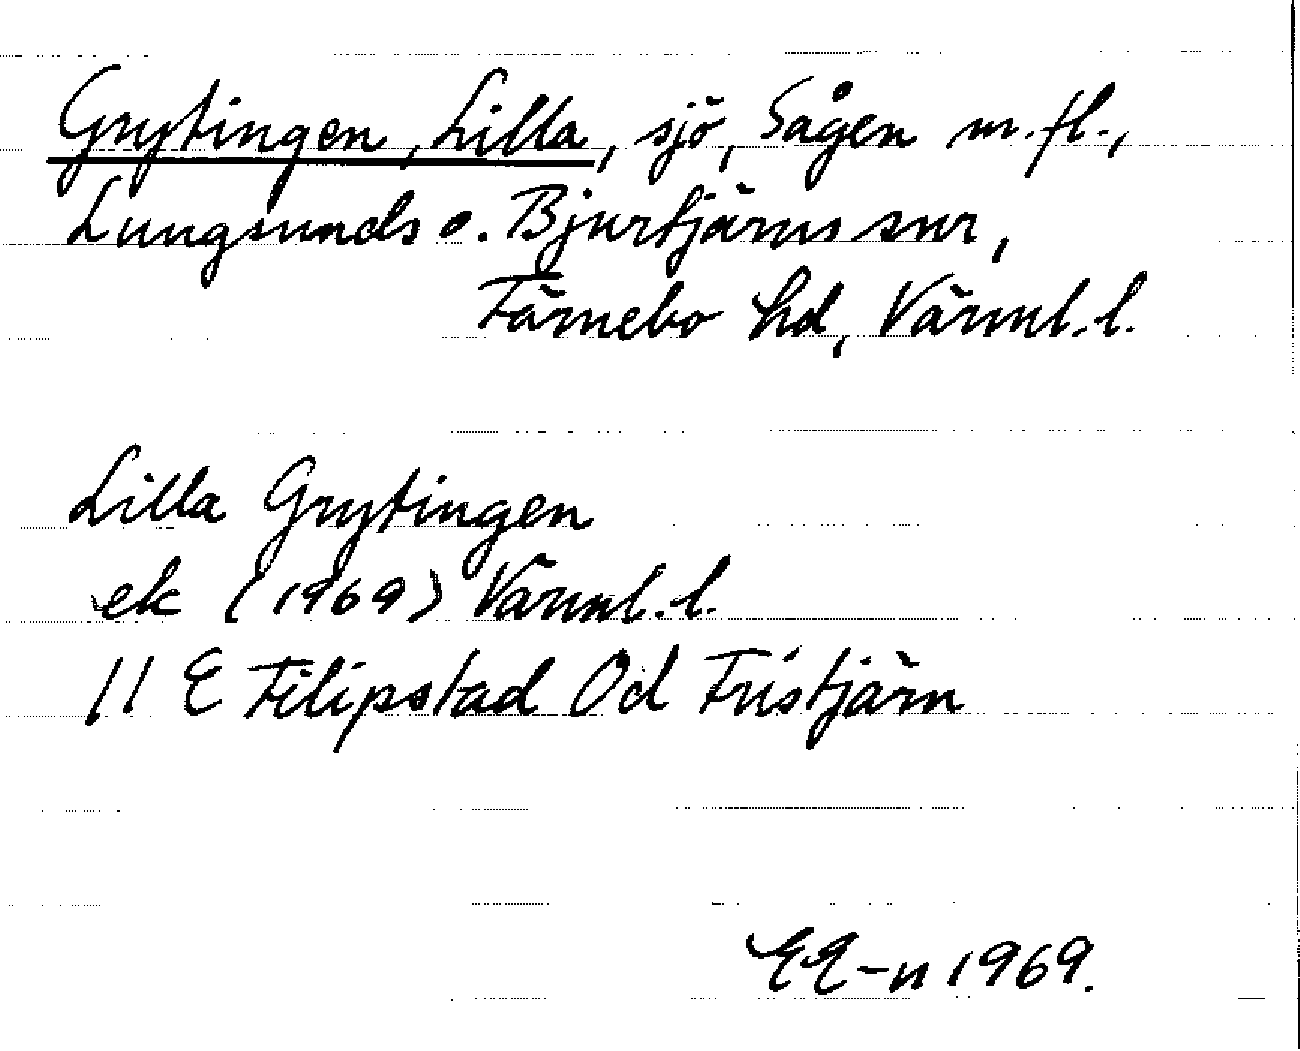 Grytingen, Lilla, sjö, Sågen m.fl.,
Lungsunds o. Bjurtjärns snr,
Färnebo hd, Värml.l.
Lilla Grytingen
ek (1969) Värml.l.
11 E Filipstad Od Fristjärn
EE-n 1969.